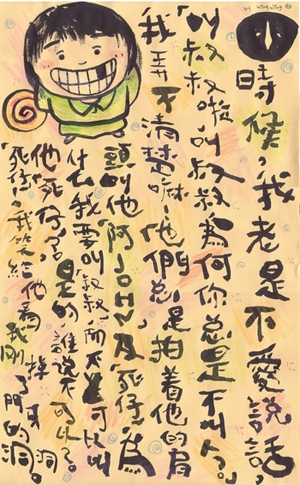 by wingwing
小時候，我老是不愛說話，
「叫叔叔啦！叫叔叔！為何你總是不叫人？」
我弄不清楚嘛！他們總是拍着他的肩
頭叫他「阿JOHN」及「死仔」，為
什么我要叫「叔叔」，而不是可以叫
他「死仔」？是的，誰說不可以？
「死仔。」我笑給他看我剛掉了門牙的洞洞。